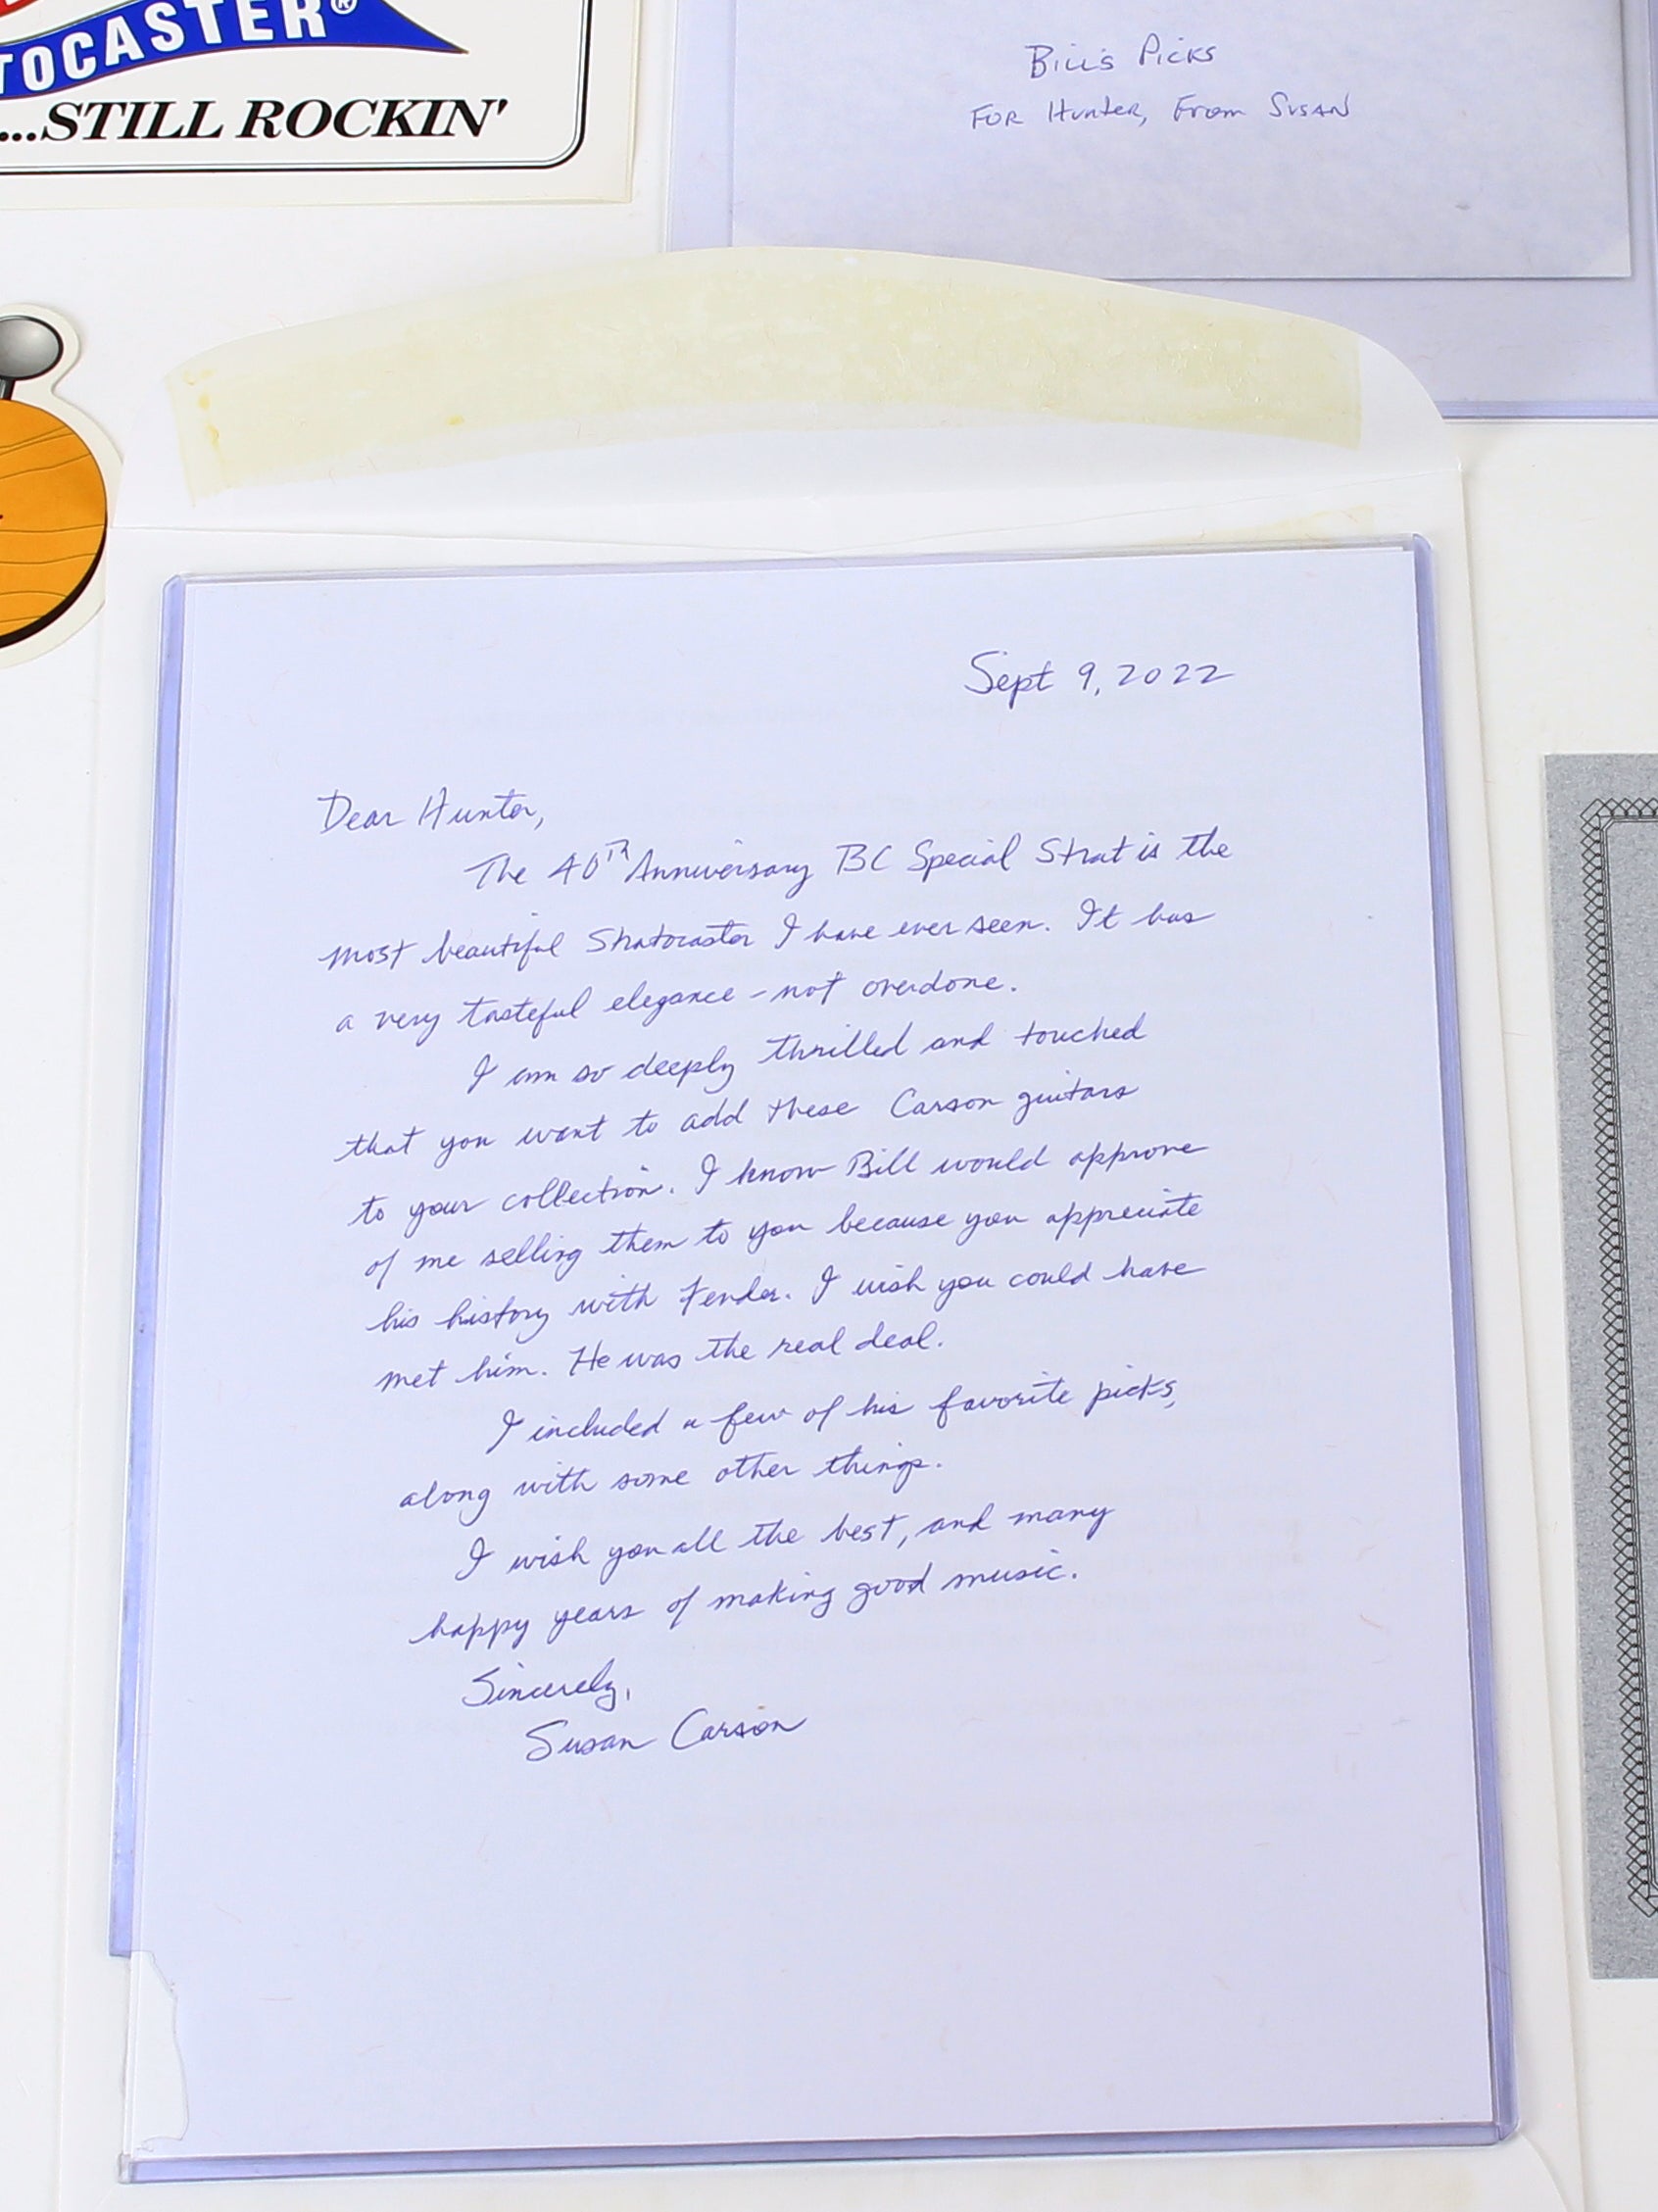 TOCASTER®
...STILL ROCKIN'
Bill's Picks
For Hunter, From Susan
Sept 9, 2022
Dear Hunter,
The 40TH Anniversary BC Special Strat is the
most beautiful Stratocaster I have ever seen. It has
a very tasteful elegance - not overdone.
I am so deeply thrilled and touched
that you want to add these Carson guitars
to your collection. I know Bill would approve
of me selling them to you because you appreciate
his history with Fender. I wish you could have
met him. He was the real deal.
I included a few of his favorite picks,
along with some other things.
I wish you all the best, and many
happy years of making good music.
Sincerely,
Susan Carson